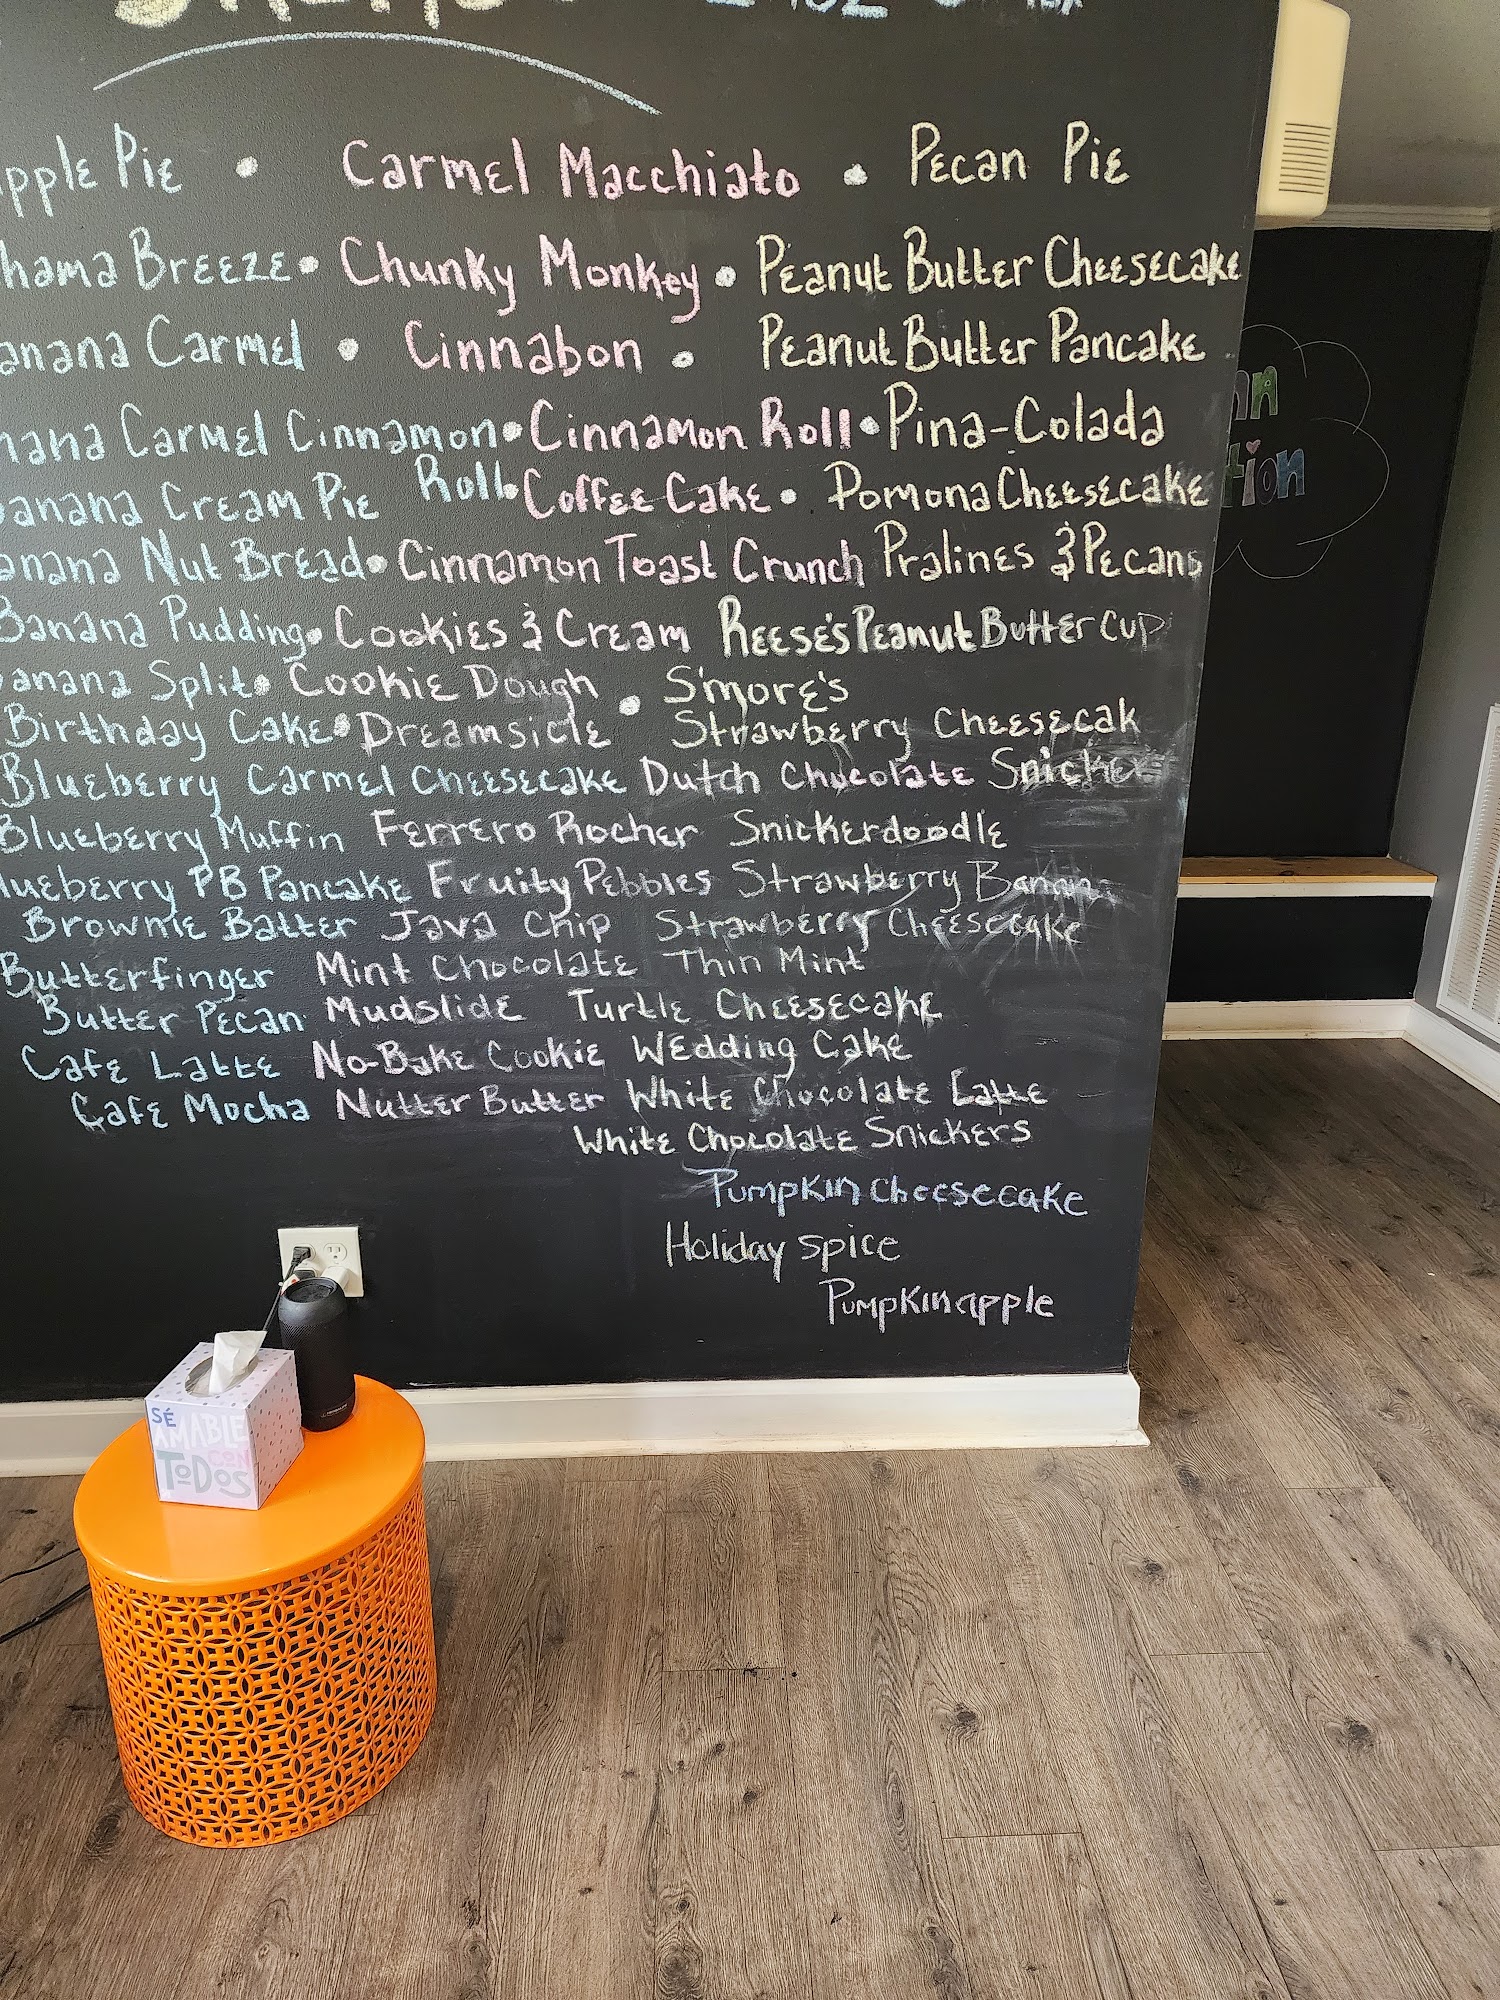 Pie • Carmel Macchiato • Pecan Pie
Breeze • Chunky Monkey • Peanut Butter Cheesecake
Carmel • Cinnabon • Peanut Butter Pancake
Carmel Cinnamon • Cinnamon Roll • Pina-Colada
Banana Cream Pie Roll • Coffee Cake • Pomona Cheesecake
Nut Bread • Cinnamon Toast Crunch Pralines & Pecans
Banana Pudding • Cookies & Cream Reese's Peanut Butter Cup
Split • Cookie Dough • S'more's
Birthday Cake • Dreamsicle Strawberry Cheesecak
Blueberry Carmel Cheesecake Dutch Chocolate Snicker
Blueberry Muffin Ferrero Rocher Snickerdoodle
PB Pancake Fruity Pebbles Strawberry Banana
Brownie Batter Java Chip Strawberry Cheesecake
Butterfinger Mint Chocolate Thin Mint
Butter Pecan Mudslide Turtle Cheesecake
Cafe Latte No-Bake Cookie Wedding Cake
Cafe Mocha Nutter Butter White Chocolate Latte
White Chocolate Snickers
Pumpkin cheesecake
Holiday spice
Pumpkin apple
SÉ
AMABLE
CON
TODOS